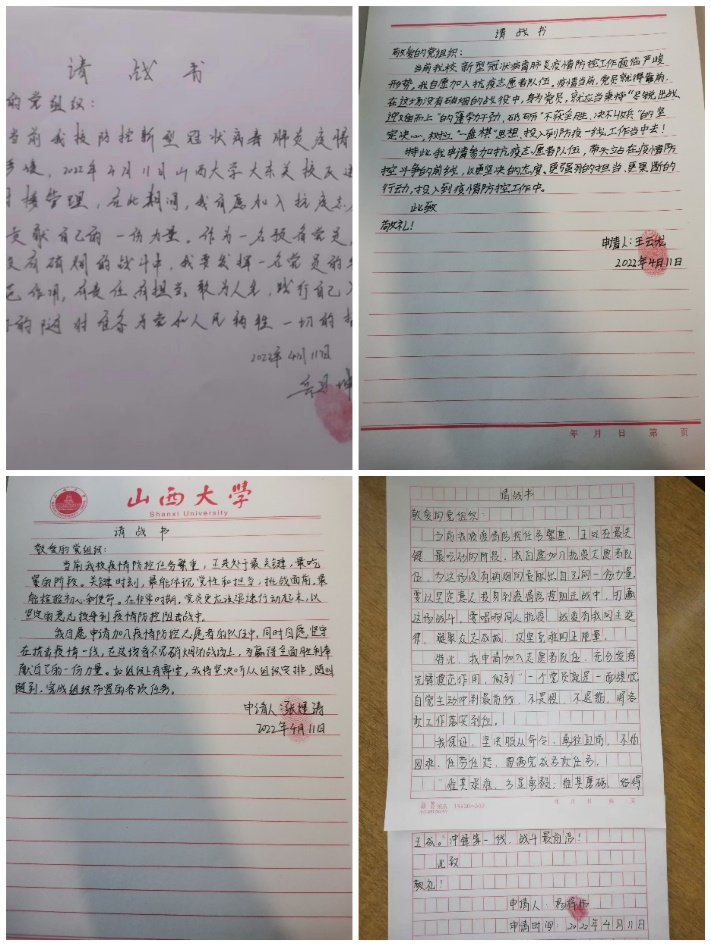 请战书
的党组织：
当前我校防控新型冠状病毒肺炎疫情
2022年4月11日山西大学大东关校区
管理，在此期间，我自愿加入抗疫志
贡献自己的一份力量。作为一名预备党员，
没有硝烟的战斗中，我要发挥一名党员的
作用，有责任有担当，敢为人先，践行自己
的随时准备为党和人民牺牲一切的
2022年4月11日
请战书
敬爱的党组织：
当前我校新型冠状病毒肺炎疫情防控工作面临严峻
形势。我自愿加入抗疫志愿者队伍。疫情当前，党员就得靠前，
在这场没有硝烟的战役中，身为党员，就应当秉持“尽锐出战、
迎难而上”的蓬勃干劲，砥砺“不获全胜，决不收兵”的坚
定决心，树立“一盘棋”思想，投入到防疫一线工作当中去！
特此我申请参加抗疫志愿者队伍，带头站在疫情防
控斗争的前线，以更坚决的态度、更强烈的担当、更果断的
行动，投入到疫情防控工作中。
此致
敬礼！
申请人：王云
2022年4月11日
年 月 日 第 页
山西大学
Shanxi University
请战书
敬爱的党组织：
当前我校疫情防控任务繁重，正是处于最关键、最吃
紧的阶段。关键时刻，最能体现党性和担当，挑战面前，最
能检验初心和使命。在非常时期，党员更应该坚决行动起来，以
坚定的意志投身到疫情防控阻击战中。
我自愿申请加入疫情防控志愿者的队伍中，同时自愿坚守
在抗击疫情一线，在这场看不见硝烟的战场上，为赢得全面胜利奉
献自己的一份力量。如组织上有需要，我将坚决听从组织安排，随叫
随到，完成组织布置的各项任务。
申请人：张
2022年4月11日
请战书
敬爱的党组织：
当前我校疫情防控任务繁重，正处在最关
键、最吃劲的阶段，我自愿加入抗疫志愿者队
伍，为这场没有硝烟的贡献出自己的一份力量，
要以坚定意志投身到疫情防控阻击战中，打赢
这场战斗。
凝聚众志成城、攻坚克难的力量。
特此，我申请加入志愿者队伍，充分发挥
先锋模范作用，做到“一个党员就是一面旗帜”，
自觉主动冲到最前线，不畏惧、不退缩，将各
项工作落实到位。
我保证，坚决服从命令，勇敢自信，不怕
困难，任劳任怨，圆满完成各项任务。
“艰其艰难，方显勇毅；艰其磨砺，始得
年 月 日 第 页
玉成。”冲锋第一线，战斗最前沿！
此致
敬礼！
申请人：
申请时间：2022年4月11日